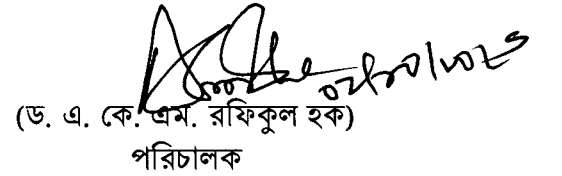 (ড. এ. কে. এম. রফিকুল হক)
পরিচালক